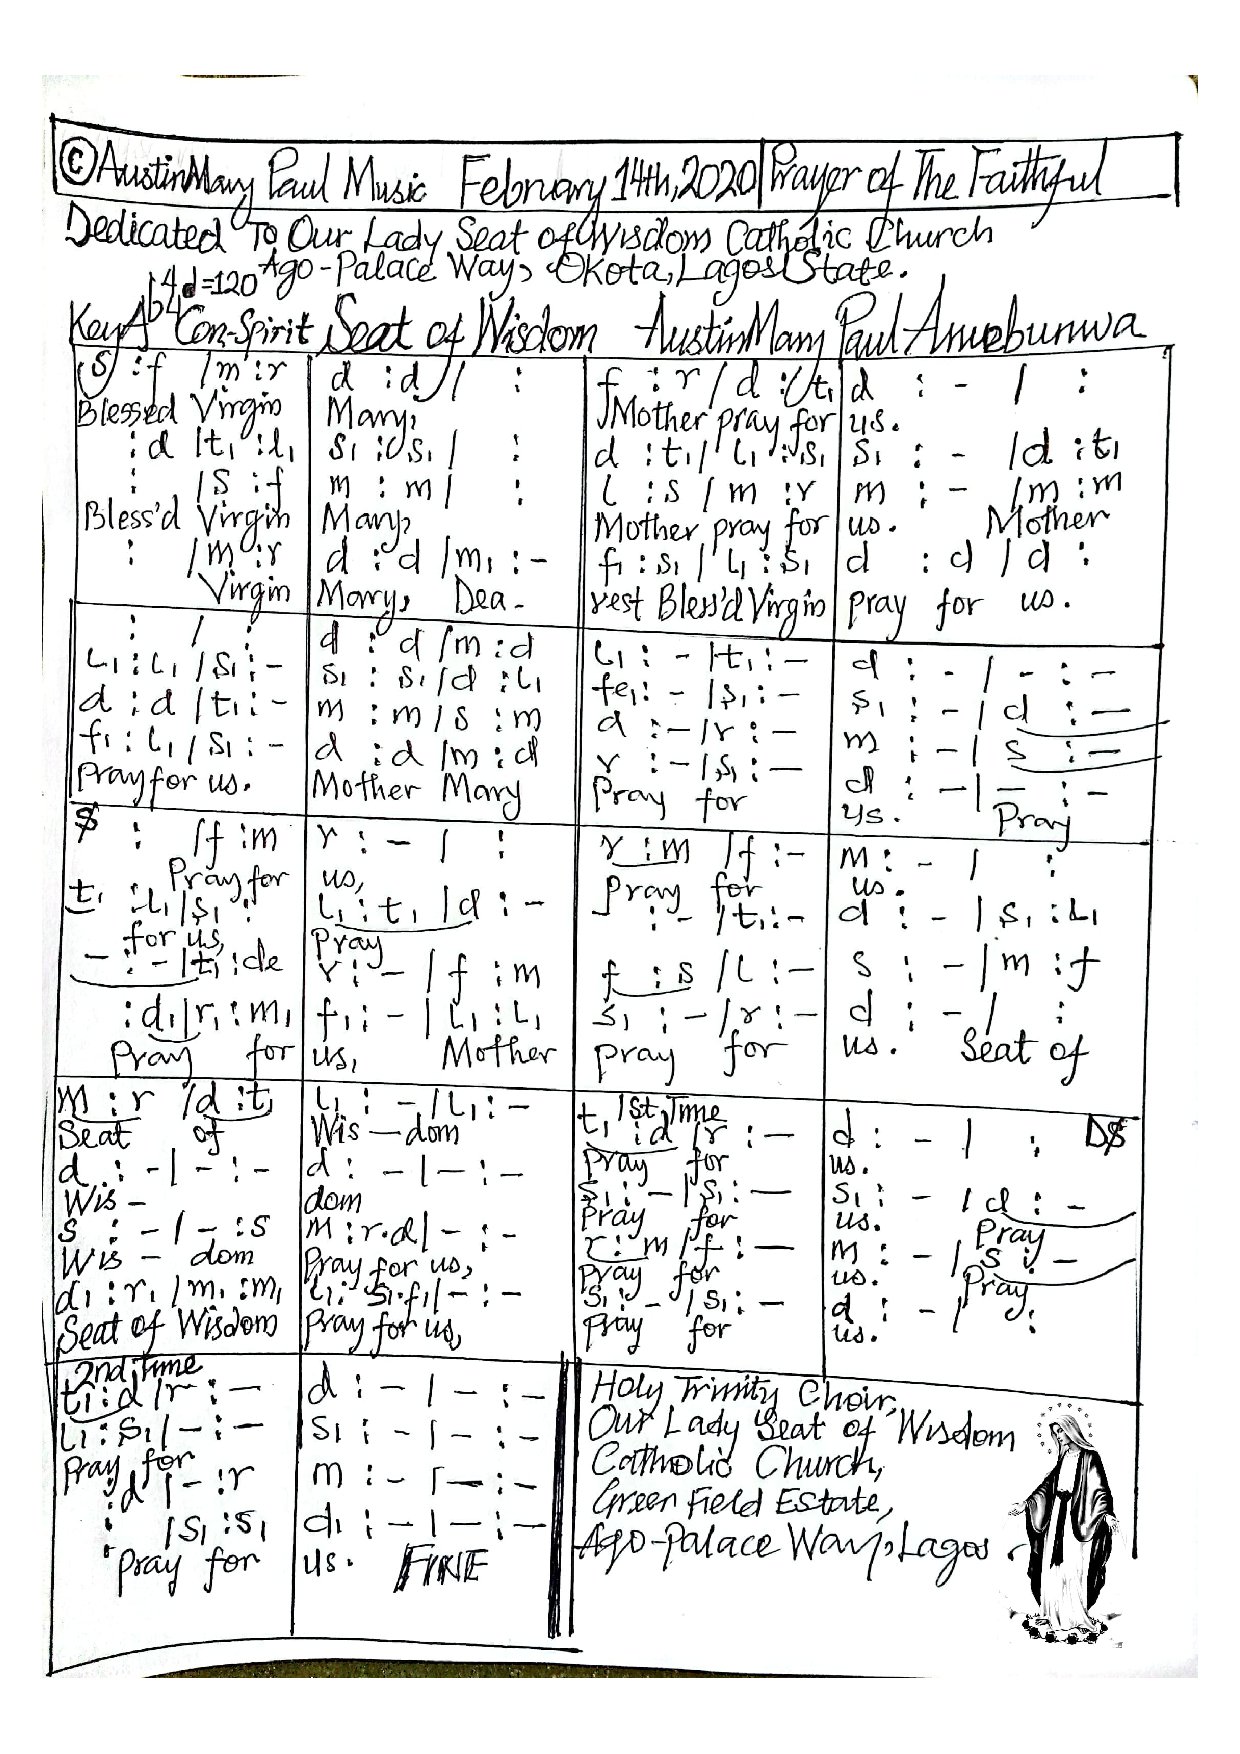 ©AustinMary Paul Music February 14th, 2020 Prayer of The Faithful
Dedicated To Our Lady Seat of Wisdom Catholic Church
Ago-Palace Way, Okota, Lagos State.
4 d=120
Key Ab 4 Con-Spirit Seat of Wisdom AustinMary Paul Amuebunwa
s :f /m :r d :d / : f :r / d :t₁ d :- / :
Blessed Virgin Mary, Mother pray for us.
:d /t₁ :l₁ s₁ :s₁ / : d :t₁ / l₁ :s₁ s₁ :- /d :t₁
: /s :f m :m / : l :s / m :r m :- /m :m
Bless'd Virgin Mary, Mother pray for us. Mother
: /m :r d :d /m₁ :- f₁ :s₁ / l₁ :s₁ d :d / d :
Virgin Mary, Dea- rest Bless'd Virgin pray for us.
: / : d :d /m :d l₁ :- /t₁ :- d :- / - :-
l₁ :l₁ /s₁ :- s₁ :s₁ /d :l₁ fe₁ :- /s₁ :- s₁ :- / d :-
d :d /t₁ :- m :m / s :m d :- /r :- m :- / s :-
f₁ :l₁ / s₁ :- d :d /m :d r :- /s₁ :- d :- / - :-
Pray for us. Mother Mary Pray for us. Pray
$ : /f :m r :- / : r :m /f :- m :- / :
Pray for us, Pray for us.
t₁ :l₁ /s₁ : l₁ :t₁ /d :- :- /t₁ :- d :- / s₁ :l₁
for us, Pray
- :- /t₁ :de r :- / f :m f :s / l :- s :- / m :f
:d₁ /r₁ :m₁ f₁ :- / l₁ :l₁ s₁ :- / r :- d :- / :
Pray for us, Mother pray for us. Seat of
m :r /d :t₁ l₁ :- / l₁ :- 1st Time t₁ :d /r :- d :- / : D$
Seat of Wis-dom pray for us.
d :- / - :- d :- / - :- s₁ :- /s₁ :- s₁ :- / d :-
Wis- dom Pray for us. Pray
s :- / - :s m :r.d / - :- r :m /f :- m :- / s :-
Wis- dom Pray for us, pray for us. Pray
d₁ :r₁ /m₁ :m₁ l₁ :s₁.f₁ / - :- s₁ :- /s₁ :- d :- / :
Seat of Wisdom Pray for us, pray for us.
2nd Time
t₁ :d /r :- d :- / - :-
l₁ :s₁ / - :- s₁ :- / - :-
Pray for
:d / - :r m :- / - :-
: /s₁ :s₁ d₁ :- / - :-
Pray for us. FINE
Holy Trinity Choir,
Our Lady Seat of Wisdom
Catholic Church,
Green Field Estate,
Ago-Palace Way, Lagos.